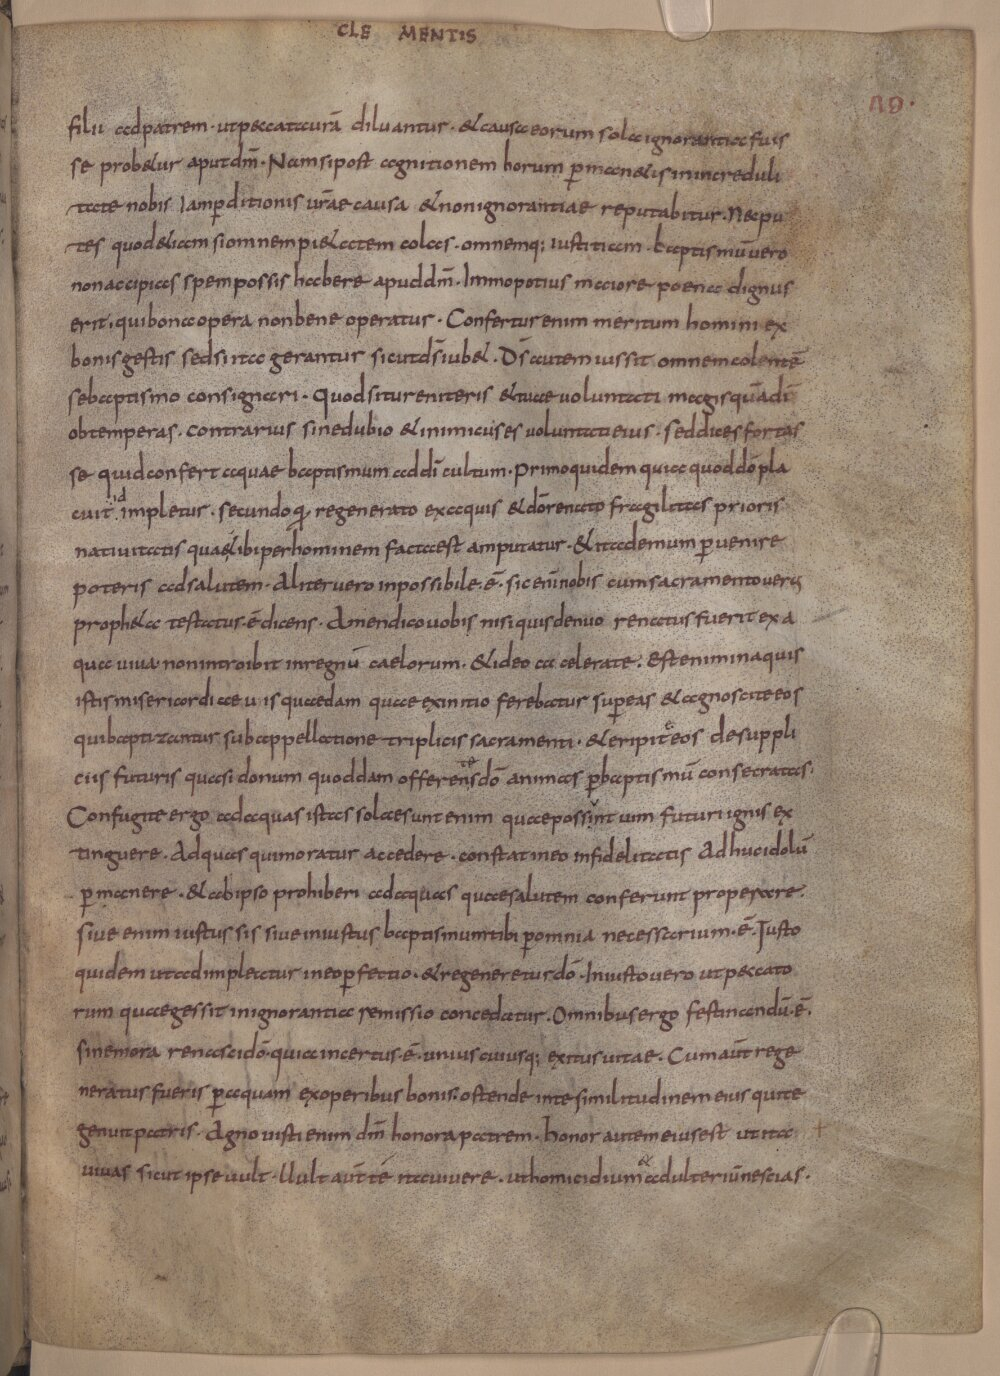 CLE MENTIS
49.
filii adpatrem · ut peccata curā diluantur · & causa eorum sola ignorantia fuis
se prob&ur aput dm̄ · Nam si post agnitionem horum ꝑman&is in increduli
tate nobis Iam ꝑditionis urāe causa & non ignorantiae reputabitur · Nec pu
tes quod &iam si omnem pi&atem colas · omnemq; iustitiam · baptismū uero
non accipias spem possis habere apud dm̄ · Immo potius maiore poena dignus
erit · qui bona opera non bene operatus · Confertur enim meritum homini ex
bonis gestis sed si ita gerantur sicut ds̄ iub& · Ds̄ autem iussit omnem colentē
se baptismo consignari · Quod si tu reniteris & tuae uoluntati magis quā di̅
obtemperas · contrarius sine dubio & inimicus es uoluntati eius · sed dices fortas
se quid confert aquae baptismum ad di̅ cultum · Primo quidem quia quod dō pla
cuit id impletur · secundo q; regenerato ex aquis & dō renato fragilitas prioris
natiuitatis quae tibi per hominem facta est amputatur · & ita demum ꝑuenire
poteris ad salutem · Aliter uero inpossibile · ē · sic enī nobis cum sacramento uerus
proph&a testatus · ē dicens · Amen dico uobis nisi quis denuo renatus fuerit ex a
qua uiua non introibit in regnū caelorum · & ideo accelerate · Est enim in aquis
istis misericordiae uis quaedam quae ex initio ferebatur super eas & agnoscit eos
qui baptizantur sub appellatione triplicis sacramenti · & eripit eos de suppli
ciis futuris quasi donum quoddam offerens dō animas ꝑ baptismū consecratas ·
Confugite ergo ad aquas istas solae sunt enim quae possint uim futuri ignis ex
tinguere · Ad quas qui moratur accedere · constat in eo infidelitatis Adhuc idolū
ꝑmanere · & ab ipso prohiberi ad aquas quae salutem conferunt properare ·
siue enim iustus sis siue iniustus baptismum tibi ꝑ omnia necessarium · ē · Iusto
quidem ut adimpleatur in eo ꝑfectio · & regeneretur dō · Iniusto uero ut peccato
rum quae gessit in ignorantia remissio concedatur · Omnibus ergo festinandū · ē ·
sine mora renasci dō · quia incertus · ē · unius cuiusq; exitus uitae · Cum aūt rege
neratus fueris ꝑ aquam ex operibus bonis ostende in te similitudinem eius qui te
genuit patris · Agnouisti enim dm̄ honora patrem · honor autem eius est ut ita
uiuas sicut ipse uult · Uult aūt te ita uiuere · ut homicidium & adulteriū nescias ·